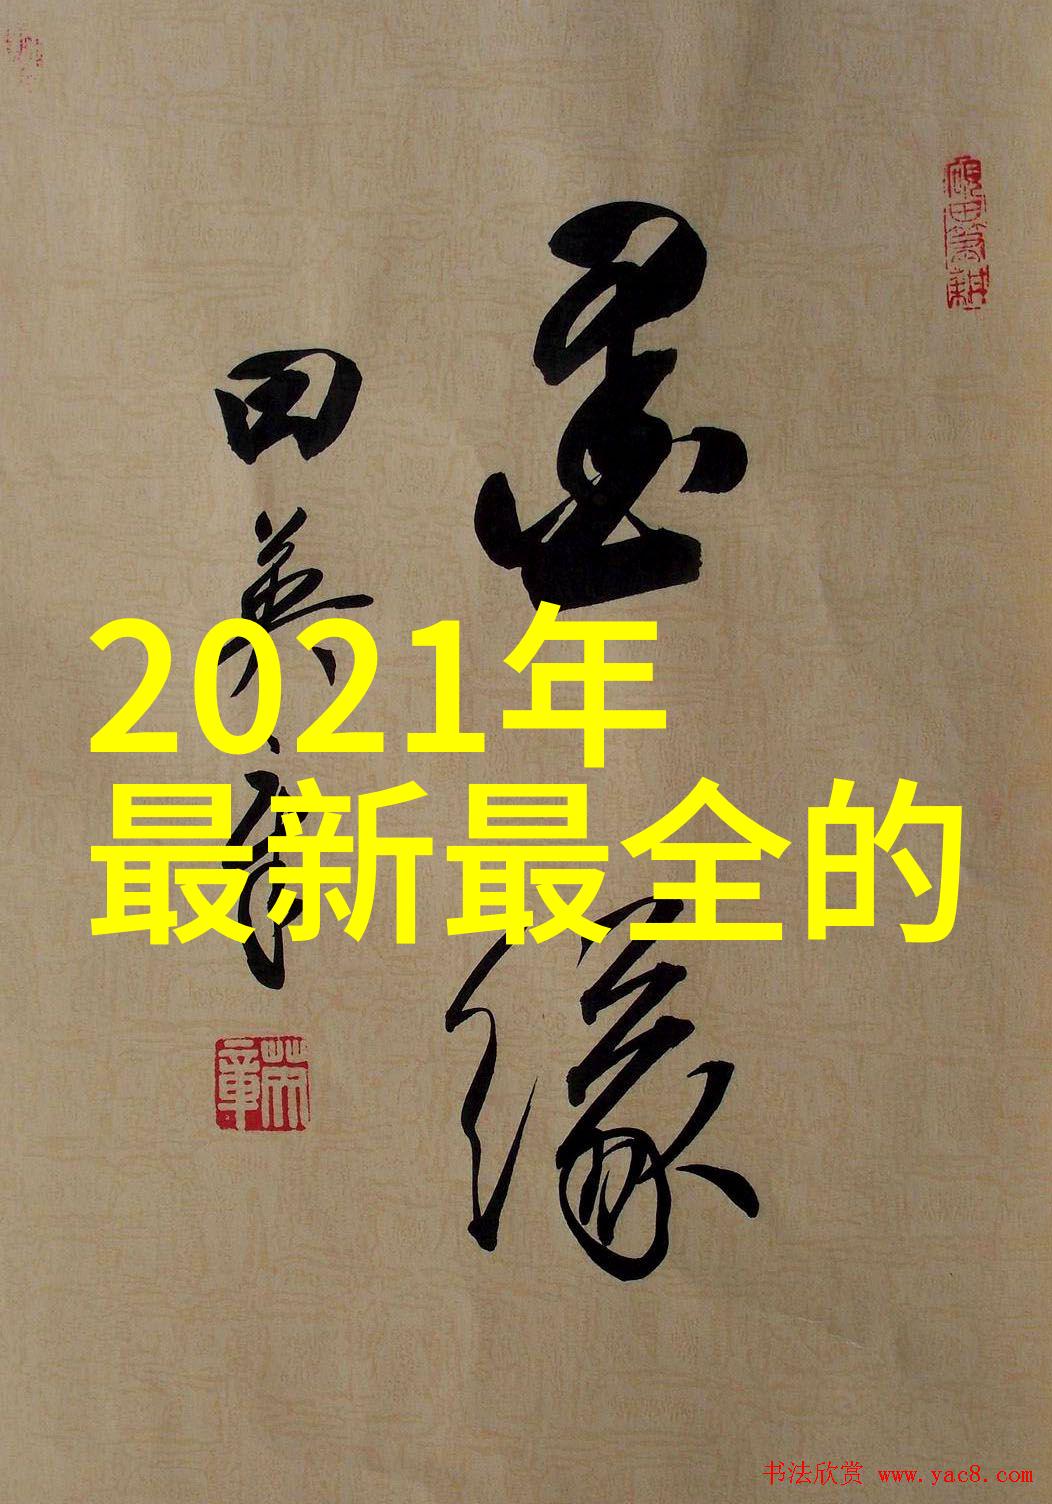 墨缘
田英章
2021年
最新最全的
书法欣赏 www.yac8.com